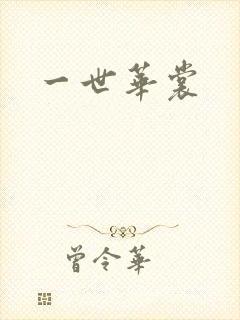 一世華裳
曾令華